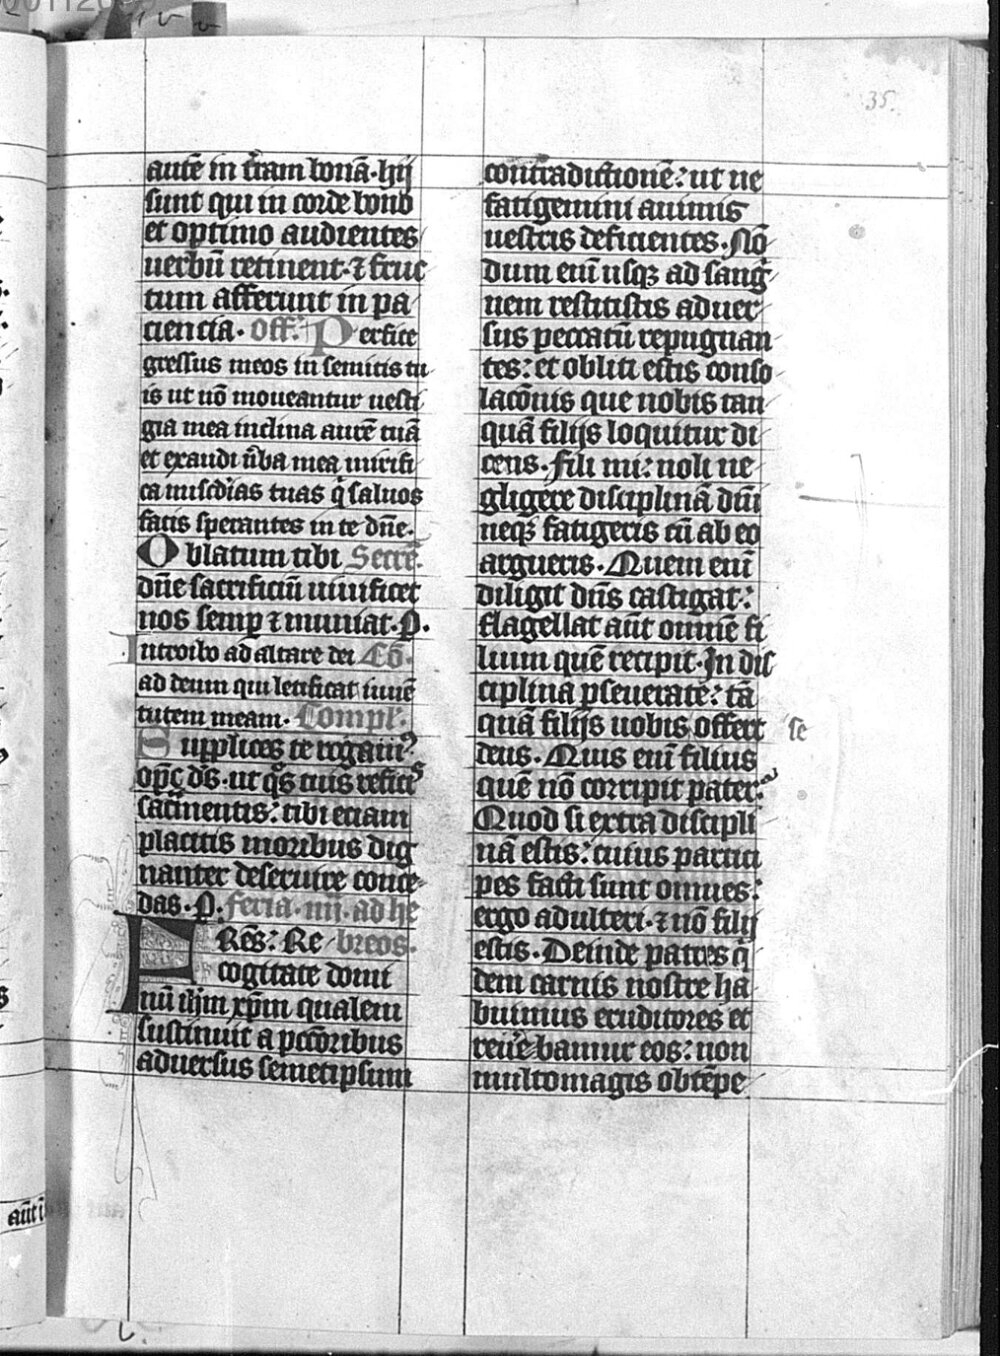 35.
autē in t̄ram bonā. hij
sunt qui in corde bono
et optimo audientes
uerbū retinent. ⁊ fruc
tum afferunt in pa
ciencia. Off. Perfice
gressus meos in semitis tu
is ut nō moueantur uesti
gia mea inclina aurē tuā
et exaudi ūba mea mirifi
ca miscd̄ias tuas q̄ saluos
facis sperantes in te dn̄e.
Oblatum tibi Secrē.
dn̄e sacrificiū uiuificet
nos semꝑ ⁊ muniat. P.
Introibo ad altare dei Cō.
ad deum qui letificat iuuē
tutem meam. Compl̄.
Supplices te rogamꝰ
opc̄ ds̄. ut qͦs tuis reficis
sacͣmentis: tibi eciam
placitis moribus dig
nanter deseruire conce
das. P. feria. iiij. ad he
FRēs: Re breos.
cogitate domi
nū ih̄m xp̄m qualem
sustinuit a pccōribus
aduersus semetipsum
contͣdictionē: ut ne
fatigemini animis
uestris deficientes. Nō
dum eni̅ usqꝫ ad sangͥ
nem restitistis aduer
sus peccatū repugnan
tes: et obliti estis conso
lacōnis que uobis tan
quā filijs loquitur di
cens. Fili mi: noli ne
gligere disciplinā dn̄i
neqꝫ fatigeris cū ab eo
argueris. Quem eni̅
diligit dn̄s castigat:
flagellat aut̄ omnē fi
lium quē recipit. In dis
ciplina ꝑseuerate: tā
quā filijs uobis offert se
deus. Quis eni̅ filius
quē nō corripit pater.
Quod si extra discipli
nā estis: cuius partici
pes facti sunt omnes:
ergo adulteri. ⁊ nō filij
estis. Deinde patres qͥ
dem carnis nostre ha
buimus eruditores et
reuērebamur eos: non
multomagis obtēpe